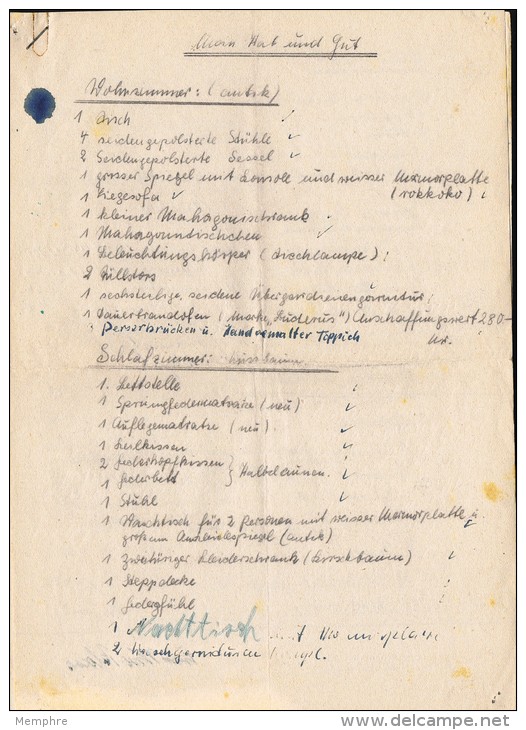 Mein Hab und Gut
Wohnzimmer: (antik)
1 Tisch
4 seidengepolsterte Stühle
2 Seidengepolsterte Sessel
1 grosser Spiegel mit Konsole und weisser Marmorplatte
(rokkoko)
1 Liegesofa
1 kleiner Mahagonischrank
1 Mahagonitischchen
1 Beleuchtungskörper (Tischlampe)
2 Füllstors
1 sechsteilige, seidene Übergardienengarnitur
1 Dauerbrandofen (Marke "Buderus") Anschaffungswert 280.-
Mr.
Perserbrücken u. Handgemalter Teppich
Schlafzimmer: Nussbaum
1. Bettstelle
1 Sprungfedermatratze (neu)
1 Auflegematratze (neu)
1 Keilkissen
2 Federkopfkissen
1 Federbett } Halbdaunen.
1 Stuhl
1 Waschtisch für 2 Personen mit weisser Marmorplatte u.
großem Ankleidespiegel (antik)
1 Zweitüriger Kleiderschrank (Kirschbaum)
1 Steppdecke
1
1 Nachttisch mit Marmorplatte
2 Waschgarnituren kompl.
Memphre
www.delcampe.net